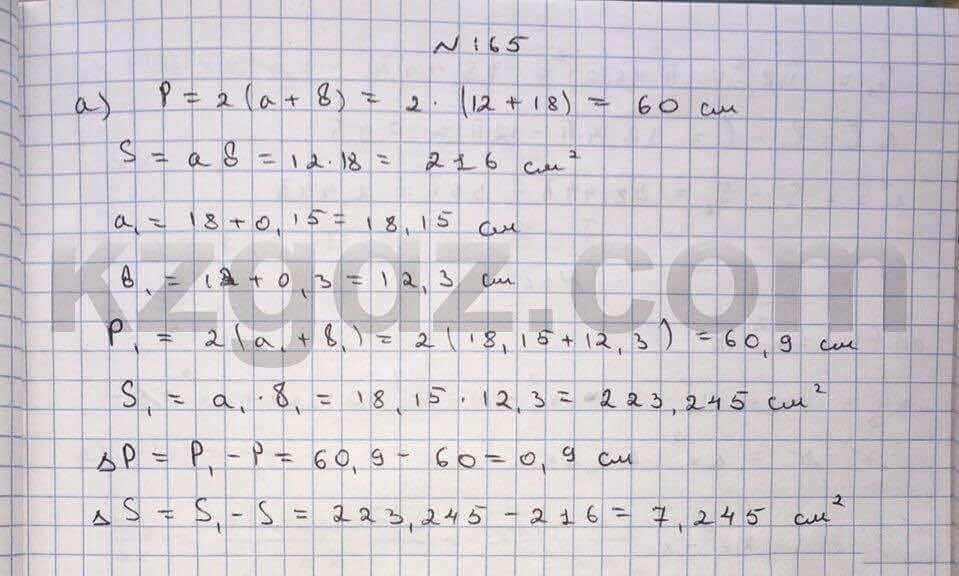 № 165
а) P = 2 (a + в) = 2 · (12 + 18) = 60 см
S = a в = 12 · 18 = 216 см²
a₁ = 18 + 0,15 = 18,15 см
в₁ = 12 + 0,3 = 12,3 см
kzgaz.com
P₁ = 2 (a₁ + в₁) = 2 (18,15 + 12,3) = 60,9 см
S₁ = a₁ · в₁ = 18,15 · 12,3 = 223,245 см²
ΔP = P₁ - P = 60,9 - 60 = 0,9 см
ΔS = S₁ - S = 223,245 - 216 = 7,245 см²